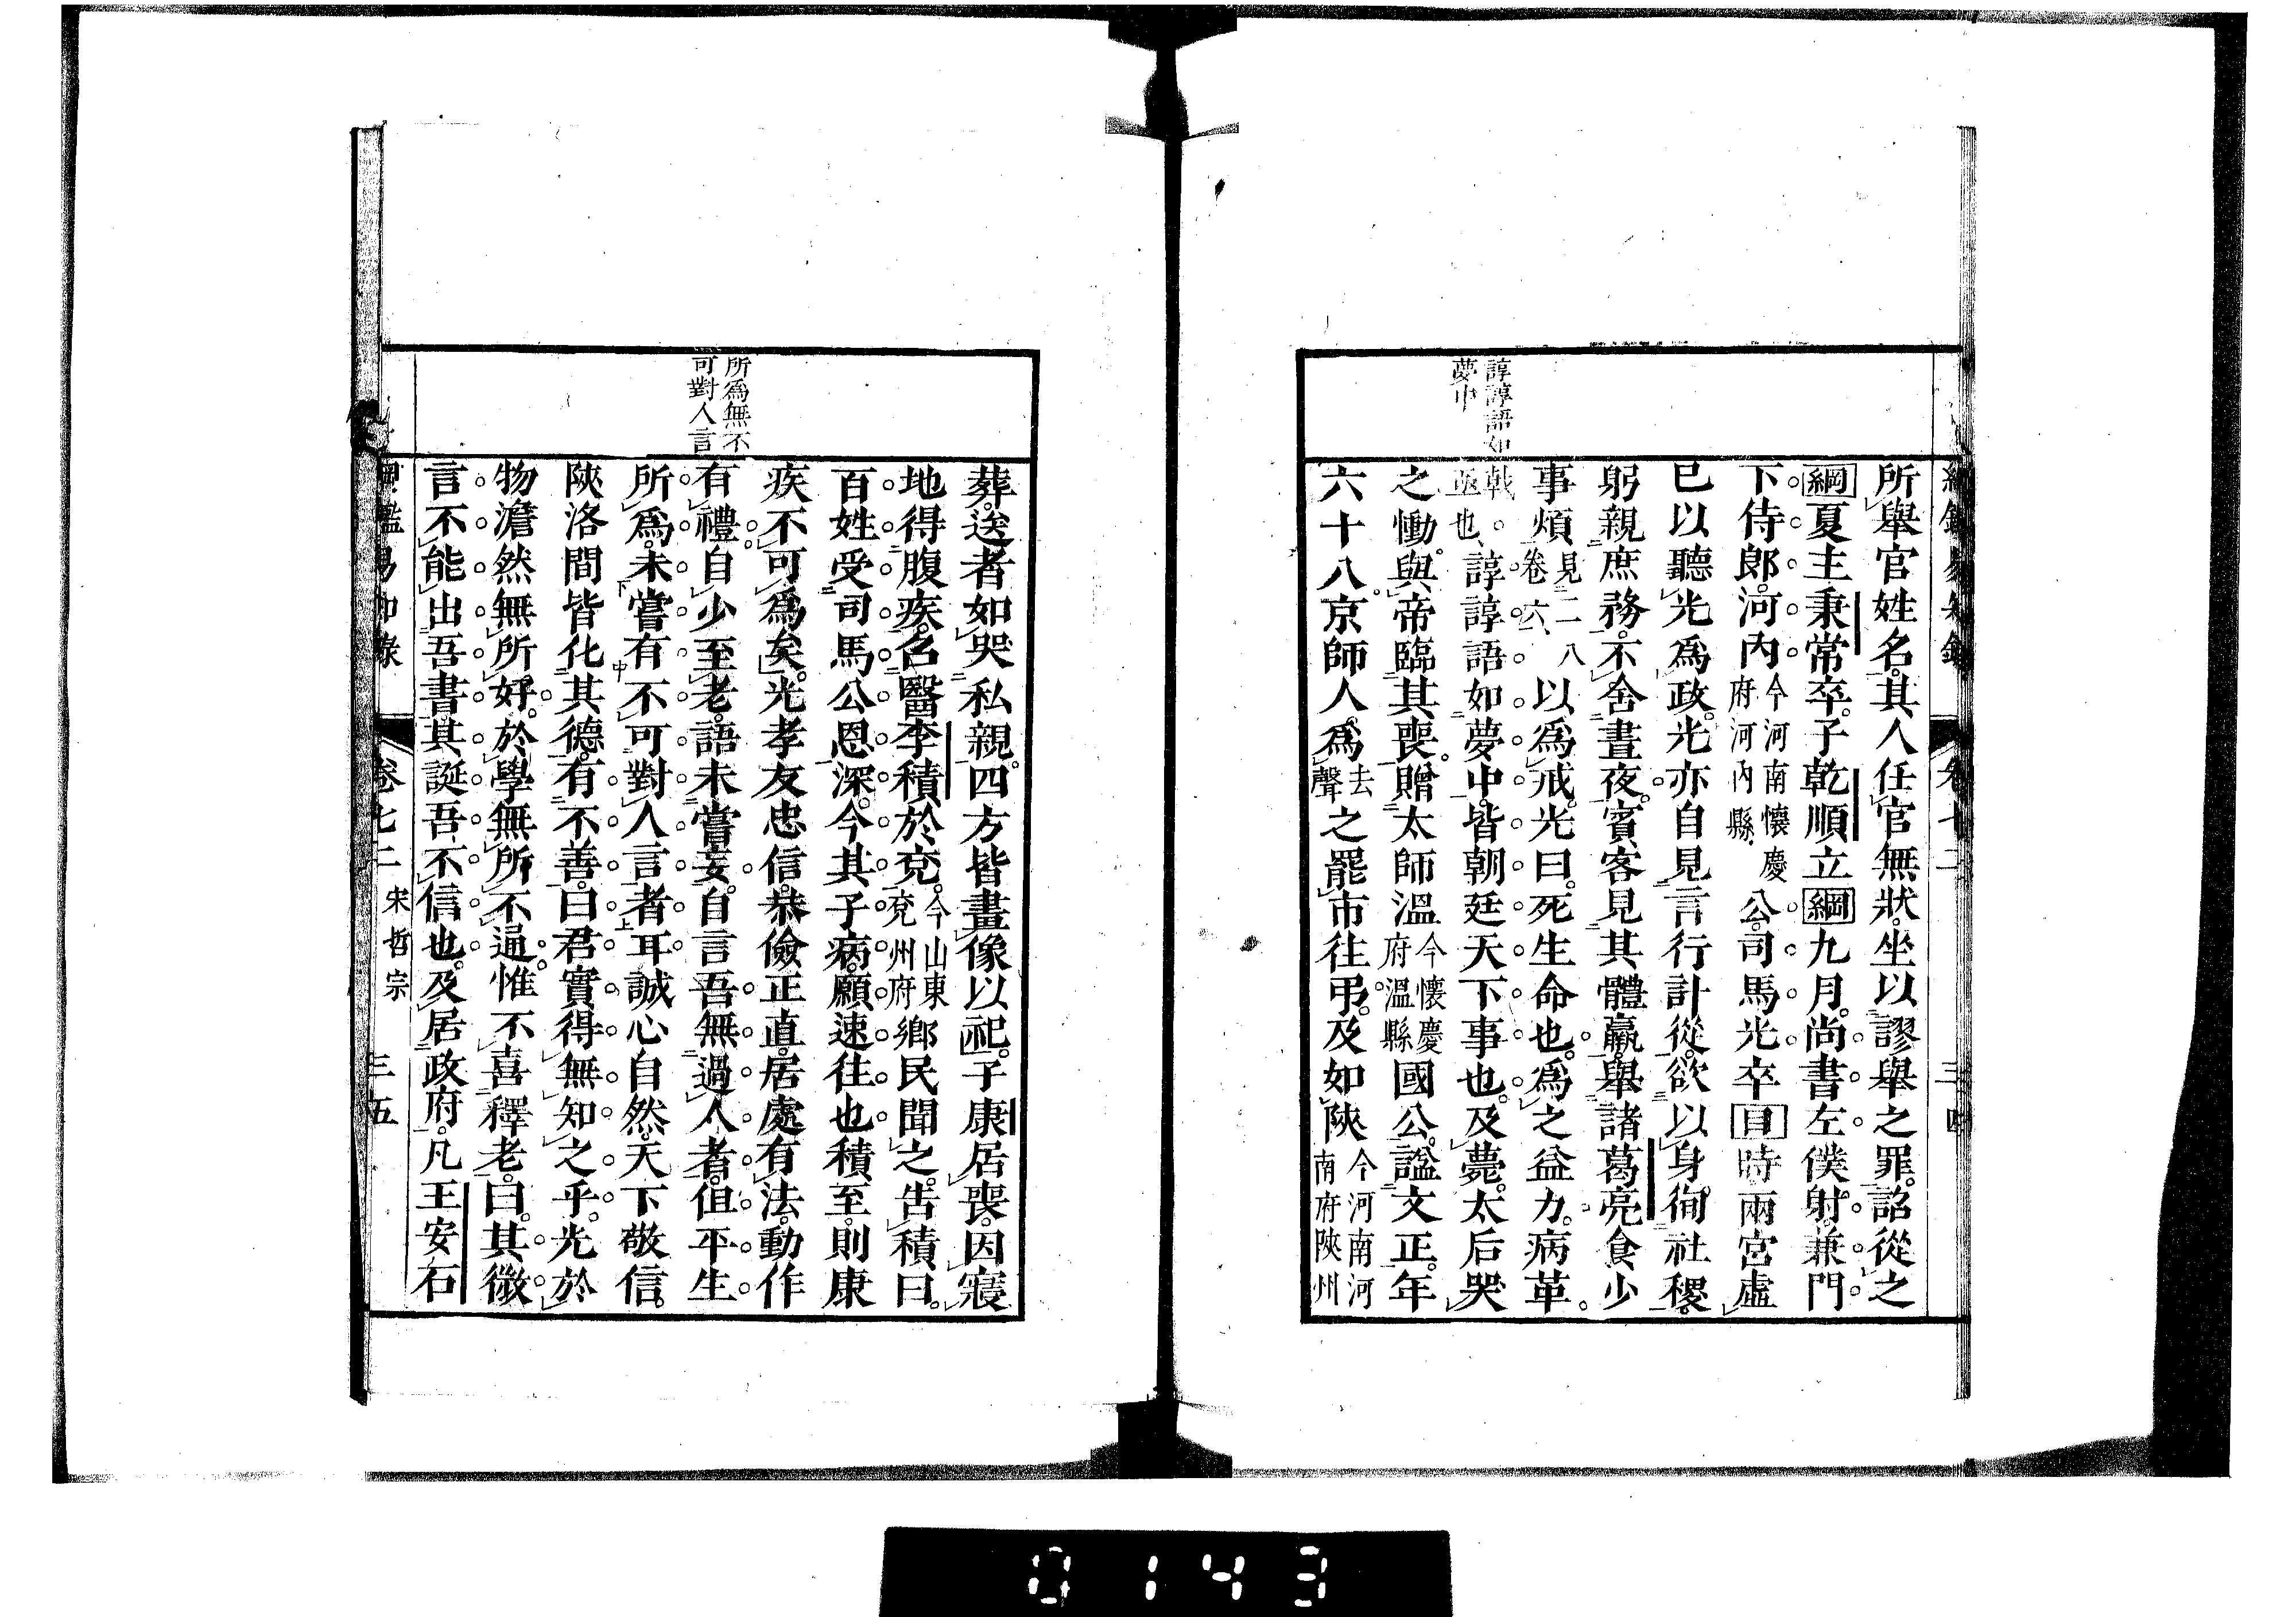 諄諄語如
夢中
所舉官姓名其人任官無狀坐以謬舉之罪詔從之
綱夏主秉常卒子乾順立綱九月尚書左僕射兼門
下侍郎河內今河南懷慶府河內縣公司馬光卒目時兩宮虛
已以聽光爲政光亦自見言行計從欲以身徇社稷
躬親庶務不舍晝夜賓客見其體羸舉諸葛亮食少
事煩見二八卷六以爲戒光曰死生命也爲之益力病革
戟亟也諄諄語如夢中皆朝廷天下事也及薨太后哭
之慟與帝臨其喪贈太師溫今懷慶府溫縣國公謚文正年
六十八京師人爲去聲之罷市往弔及如陝今河南河南府陝州
卷七二
三四
所爲無不
可對人言
葬送者如哭私親四方皆畫像以祀子康居喪因寢
地得腹疾召醫李積於兗今山東兗州府鄉民聞之告積曰
百姓受司馬公恩深今其子病願速往也積至則康
疾不可爲矣光孝友忠信恭儉正直居處有法動作
有禮自少至老語未嘗妄自言吾無過人者但平生
所爲未嘗有不可對人言者耳誠心自然天下敬信
陝洛間皆化其德有不善曰君實得無知之乎光於
物澹然無所好於學無所不通惟不喜釋老曰其微
言不能出吾書其誕吾不信也及居政府凡王安石
綱鑑易知錄 卷七二 宋哲宗 三五
0143